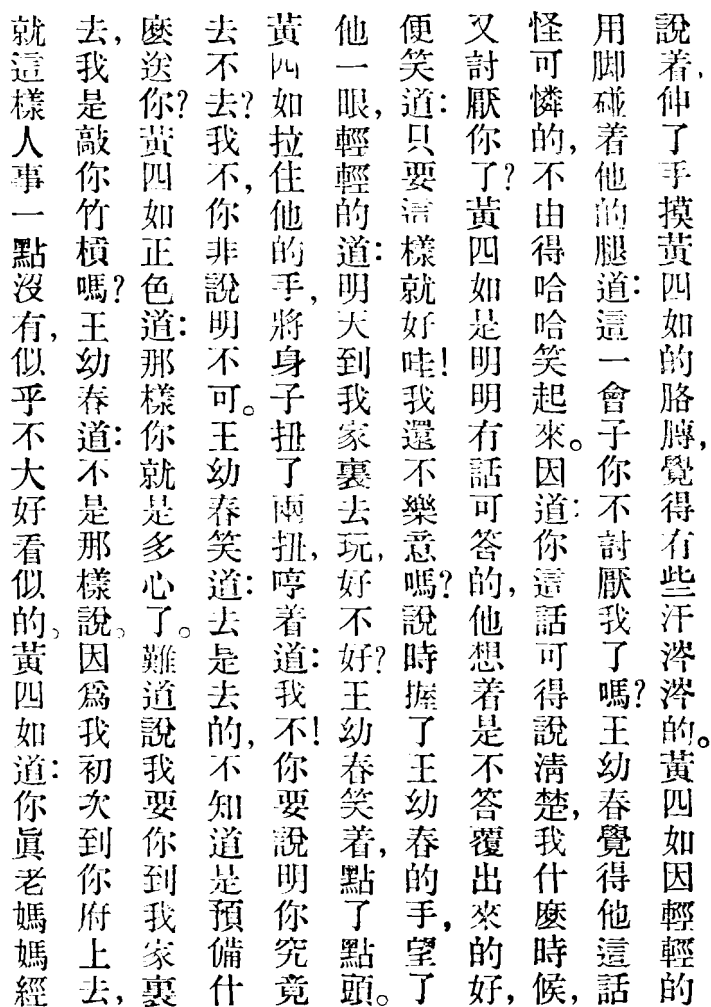 說着，伸了手摸黃四如的胳膊，覺得有些汗涔涔的。黃四如因輕輕的
用脚碰着他的腿道：這一會子你不討厭我了嗎？王幼春覺得他這話
怪可憐的，不由得哈哈笑起來。因道：你這話可得說清楚，我什麽時候，
又討厭你了？黃四如是明明有話可答的，他想着是不答覆出來的好，
便笑道：只要這樣就好哇！我還不樂意嗎？說時握了王幼春的手，望了
他一眼，輕輕的道：明天到我家裏去玩，好不好？王幼春笑着，點了點頭。
黃四如拉住他的手，將身子扭了兩扭，哼着道：我不！你要說明你究竟
去不去？我不，你非說明不可。王幼春笑道：去是去的，不知道是預備什
麽送你？黃四如正色道：那樣你就是多心了。難道說我要你到我家裏
去，我是敲你竹槓嗎？王幼春道：不是那樣說。因爲我初次到你府上去，
就這樣人事一點沒有，似乎不大好看似的。黃四如道：你眞老媽媽經